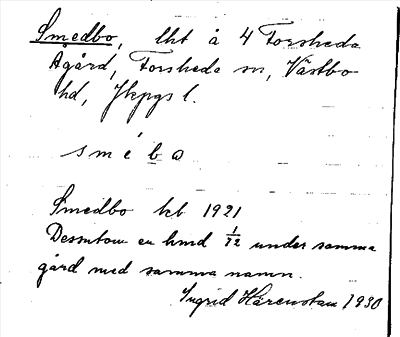 Smedbo, lht å 4 Forsheda
Ågård, Forsheda sn, Västbo
hd, Jkpgs l.
s m é b a
Smedbo kb 1921
Dessutom en hmd 1/12 under samma
gård med samma namn.
Ingrid Härenstam 1930